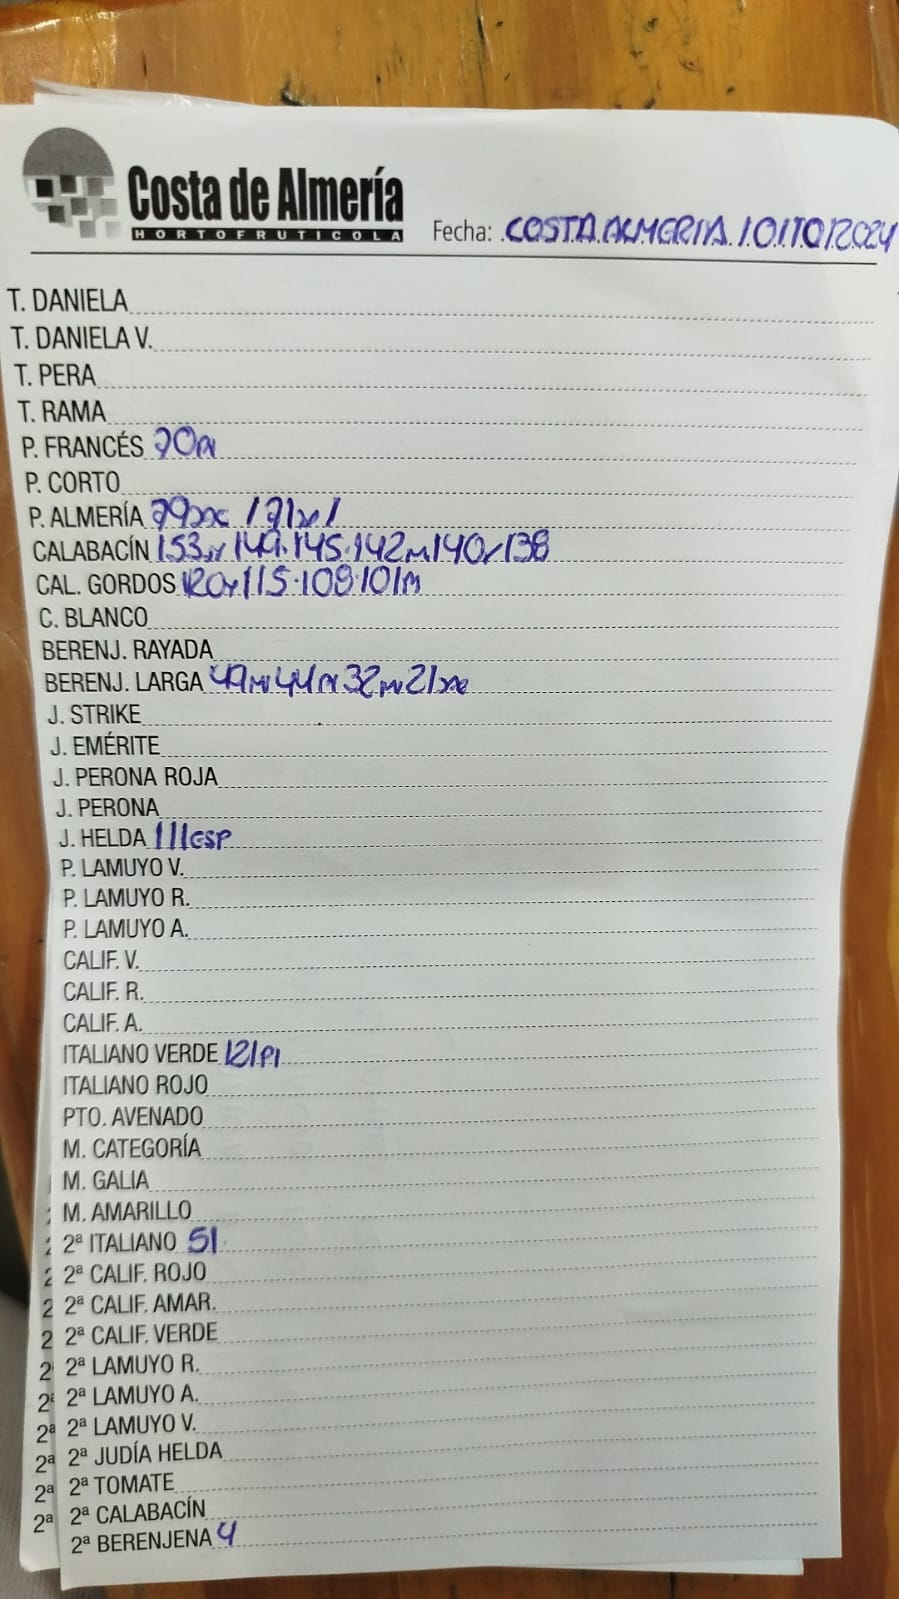 Costa de Almería
HORTOFRUTICOLA
Fecha: COSTA ALMERIA 10/10/2024
T. DANIELA
T. DANIELA V.
T. PERA
T. RAMA
P. FRANCÉS
P. CORTO
P. ALMERÍA
CALABACÍN 153 149 145 142 140 138
CAL. GORDOS 120 115 108 101
C. BLANCO
BERENJ. RAYADA
BERENJ. LARGA 49 44 32 21
J. STRIKE
J. EMÉRITE
J. PERONA ROJA
J. PERONA
J. HELDA 111 ESP
P. LAMUYO V.
P. LAMUYO R.
P. LAMUYO A.
CALIF. V.
CALIF. R.
CALIF. A.
ITALIANO VERDE 121 PI
ITALIANO ROJO
PTO. AVENADO
M. CATEGORÍA
M. GALIA
M. AMARILLO
2ª ITALIANO 51
2ª CALIF. ROJO
2ª CALIF. AMAR.
2ª CALIF. VERDE
2ª LAMUYO R.
2ª LAMUYO A.
2ª LAMUYO V.
2ª JUDÍA HELDA
2ª TOMATE
2ª CALABACÍN
2ª BERENJENA 4